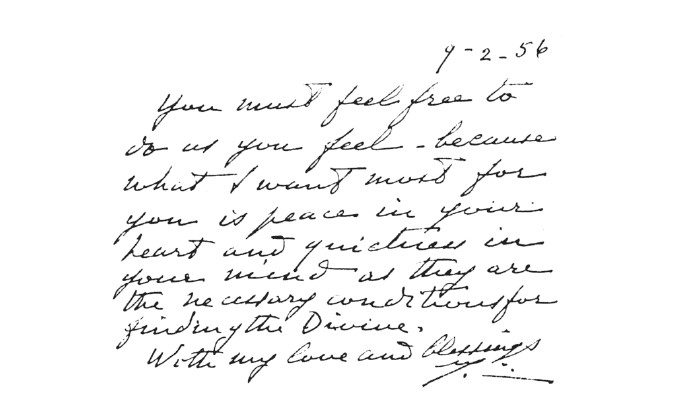 9-2-56
You must feel free to
do as you feel - because
what I want most for
you is peace in your
heart and quietness in
your mind as they are
the necessary conditions for
finding the Divine.
With my love and blessings